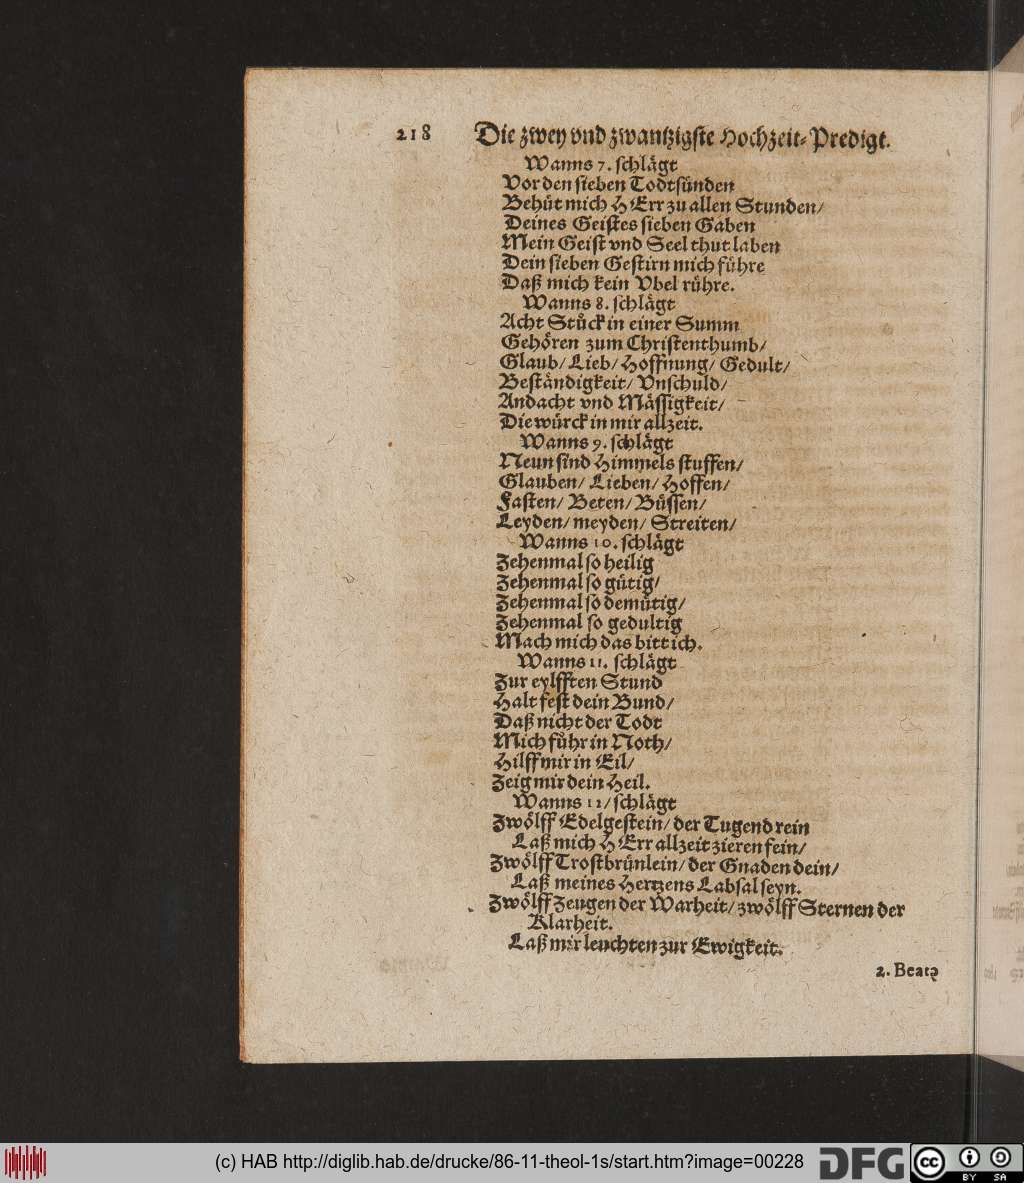 218 Die zwey vnd zwantzigste Hochzeit-Predigt.
Wanns 7. schlägt
Vor den sieben Todtsünden
Behüt mich HErr zu allen Stunden/
Deines Geistes sieben Gaben
Mein Geist vnd Seel thut laben
Dein sieben Gestirn mich führe
Daß mich kein Vbel rühre.
Wanns 8. schlägt
Acht Stück in einer Summ
Gehören zum Christenthumb/
Glaub/ Lieb/ Hoffnung/ Gedult/
Beständigkeit/ Vnschuld/
Andacht vnd Mässigkeit/
Die würck in mir allzeit.
Wanns 9. schlägt
Neun sind Himmels stuffen/
Glauben/ Lieben/ Hoffen/
Fasten/ Beten/ Büssen/
Leyden/ meyden/ Streiten/
Wanns 10. schlägt
Zehenmal so heilig
Zehenmal so gütig/
Zehenmal so demütig/
Zehenmal so gedultig
Mach mich das bitt ich.
Wanns 11. schlägt
Zur eylfften Stund
Halt fest dein Bund/
Daß nicht der Todt
Mich führ in Noth/
Hilff mir in Eil/
Zeig mir dein Heil.
Wanns 12/ schlägt
Zwölff Edelgestein/ der Tugend rein
Laß mich HErr allzeit zieren fein/
Zwölff Trostbrünlein/ der Gnaden dein/
Laß meines Hertzens Labsal seyn.
Zwölff Zeugen der Warheit/ zwölff Sternen der
Klarheit.
Laß mir leuchten zur Ewigkeit.
2. Beatę
(c) HAB http://diglib.hab.de/drucke/86-11-theol-1s/start.htm?image=00228
DFG
cc BY SA